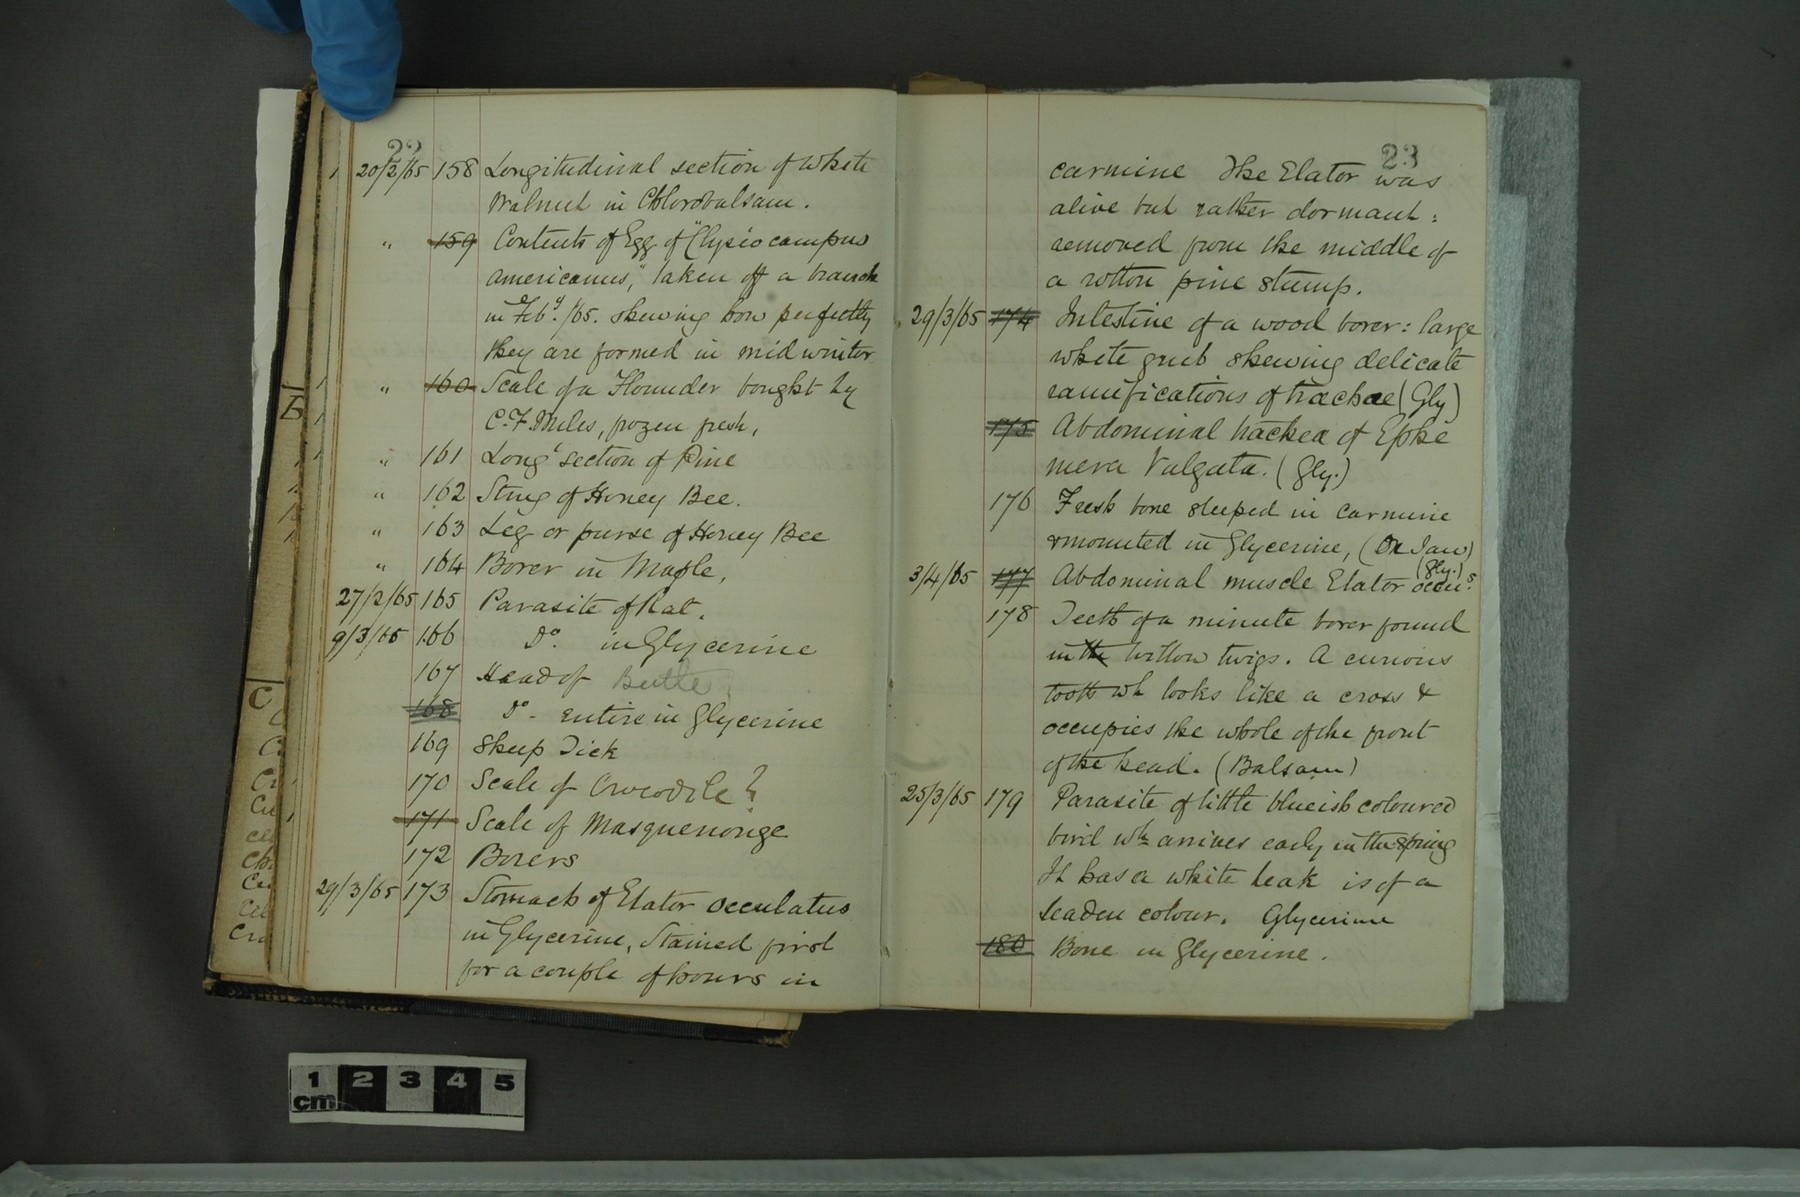 22
20/2/65 158 Longitudinal section of White
Walnut in Chlorobalsam.
" 159 Contents of Egg of "Clysiocampus
americanus," taken off a branch
in Feby. /65. shewing how perfectly
they are formed in mid winter
" 160 Scale of a Flounder bought by
C. F. Miles, frozen fresh,
" 161 Longl section of Pine
" 162 Sting of Honey Bee.
" 163 Leg or purse of Honey Bee
" 164 Borer in Maple,
27/2/65 165 Parasite of Rat.
9/3/65 166 Do. in Glycerine
167 Head of Beetle
168 Do. entire in Glycerine
169 Sheep Tick
170 Scale of Crocodile?
171 Scale of Masquenonge
172 Borers
29/3/65 173 Stomach of Elator occulatus
in Glycerine, Stained first
for a couple of hours in
23
carmine The Elator was
alive but rather dormant:
removed from the middle of
a rotton pine stump.
29/3/65 174 Intestine of a wood borer: large
white grub shewing delicate
ramifications of tracheae (Gly)
175 Abdominal trachea of Ephe
mera Vulgata. (Gly.)
176 Fresh bone steeped in carmine
& mounted in Glycerine, (Ox Jaw)
(Gly.)
3/4/65 177 Abdominal muscle Elator occus.
178 Teeth of a minute borer found
in the Willow twigs. A curious
tooth wh looks like a cross &
occupies the whole of the front
of the head. (Balsam)
25/3/65 179 Parasite of little blueish coloured
bird wh arrives early in the spring
It has a white beak is of a
leaden colour. Glycerine
180 Bone in Glycerine.
E
C
1 2 3 4 5
cm